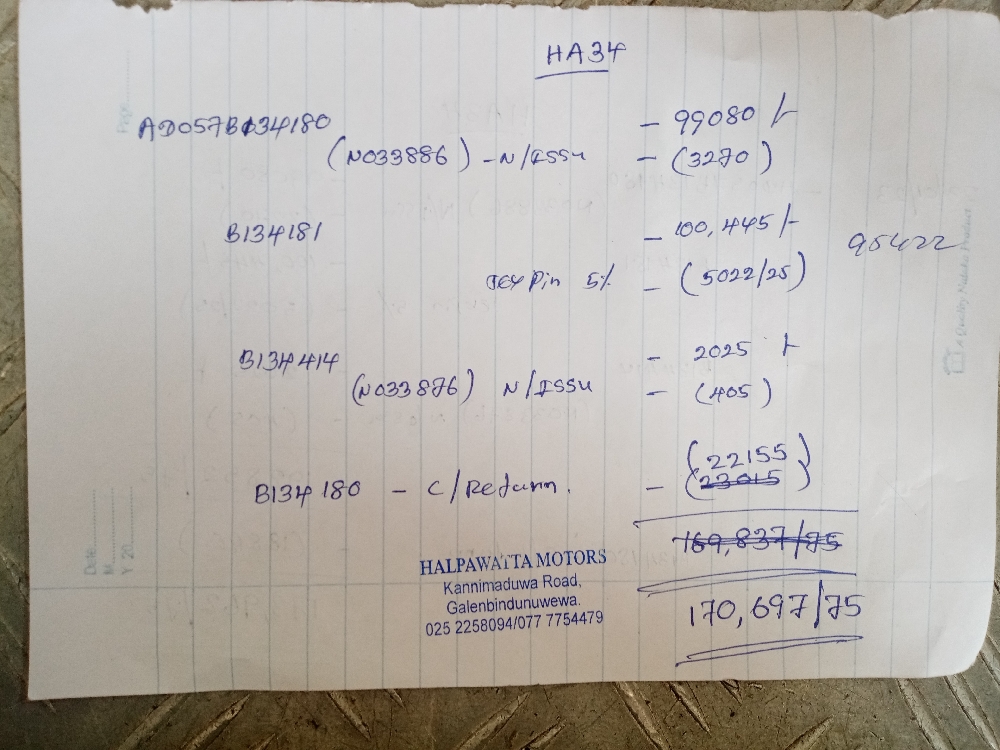 HA34
AD057B034180 - 99080/-
(N033886) - N/ISSU - (3270)
B134181 - 100,445/-
95422
5% - (5022/25)
B134414 - 2025/-
(N033876) N/ISSU - (405)
(22155)
B134180 - C/Return. - (23015)
169,837/75
170,697/75
HALPAWATTA MOTORS
Kannimaduwa Road,
Galenbindunuwewa.
025 2258094/077 7754479
Page
Date
M
Y 20
A Quality Product